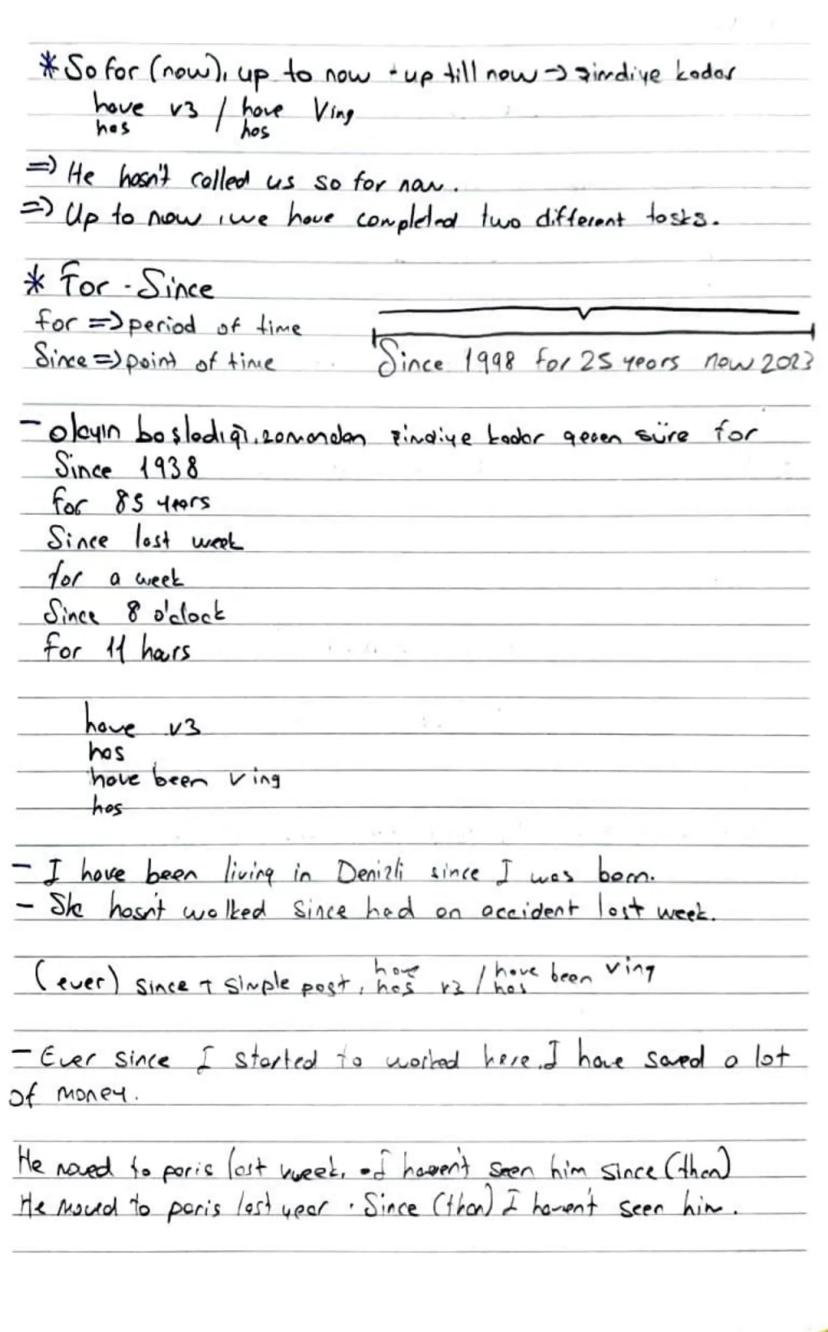 * So far (now), up to now - up till now → şimdiye kadar
have v3 / have Ving
has has
⇒ He hasn't called us so far now.
⇒ Up to now, we have completed two different tasks.
* For - Since
for ⇒ period of time
Since ⇒ point of time
Since 1998 for 25 years now 2023
- olayın başladığı, zamandan şimdiye kadar geçen süre for
Since 1938
for 85 years
Since last week
for a week
Since 8 o'clock
for 11 hours
have v3
has
have been ving
has
- I have been living in Denizli since I was born.
- She hasn't walked since had an accident last week.
(ever) since + simple past, have has v3 / have has been ving
- Ever since I started to worked here, I have saved a lot
of money.
He moved to paris last week. I haven't seen him since (then)
He moved to paris last year. Since (then) I haven't seen him.